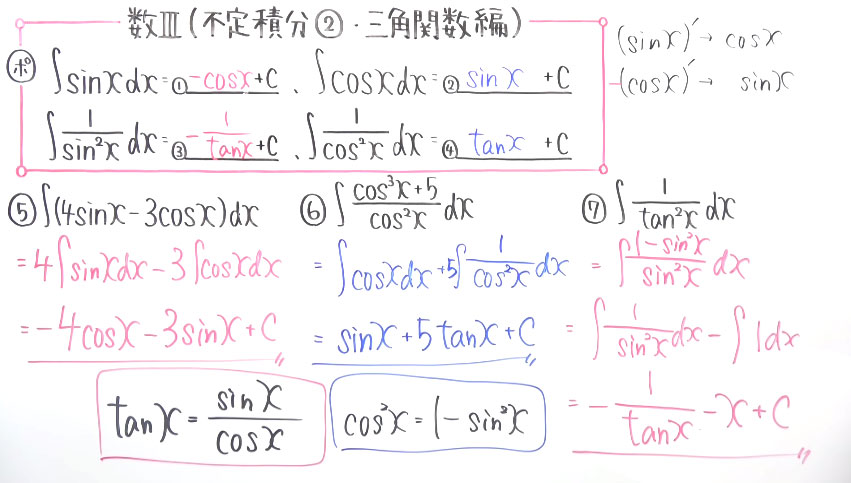 数Ⅲ(不定積分②・三角関数編)
ポ ∫sinxdx=①-cosx+C、∫cosxdx=②sinx+C
∫1/sin²x dx=③-1/tanx+C、∫1/cos²x dx=④tanx+C
(sinx)'→ cosx
-(cosx)'→ sinx
⑤∫(4sinx-3cosx)dx
=4∫sinxdx-3∫cosxdx
=-4cosx-3sinx+C
⑥∫(cos³x+5)/cos²x dx
=∫cosxdx+5∫1/cos²x dx
=sinx+5tanx+C
⑦∫1/tan²x dx
=∫(1-sin²x)/sin²x dx
=∫1/sin²x dx-∫1dx
=-1/tanx-x+C
tanx=sinx/cosx
cos²x=1-sin²x